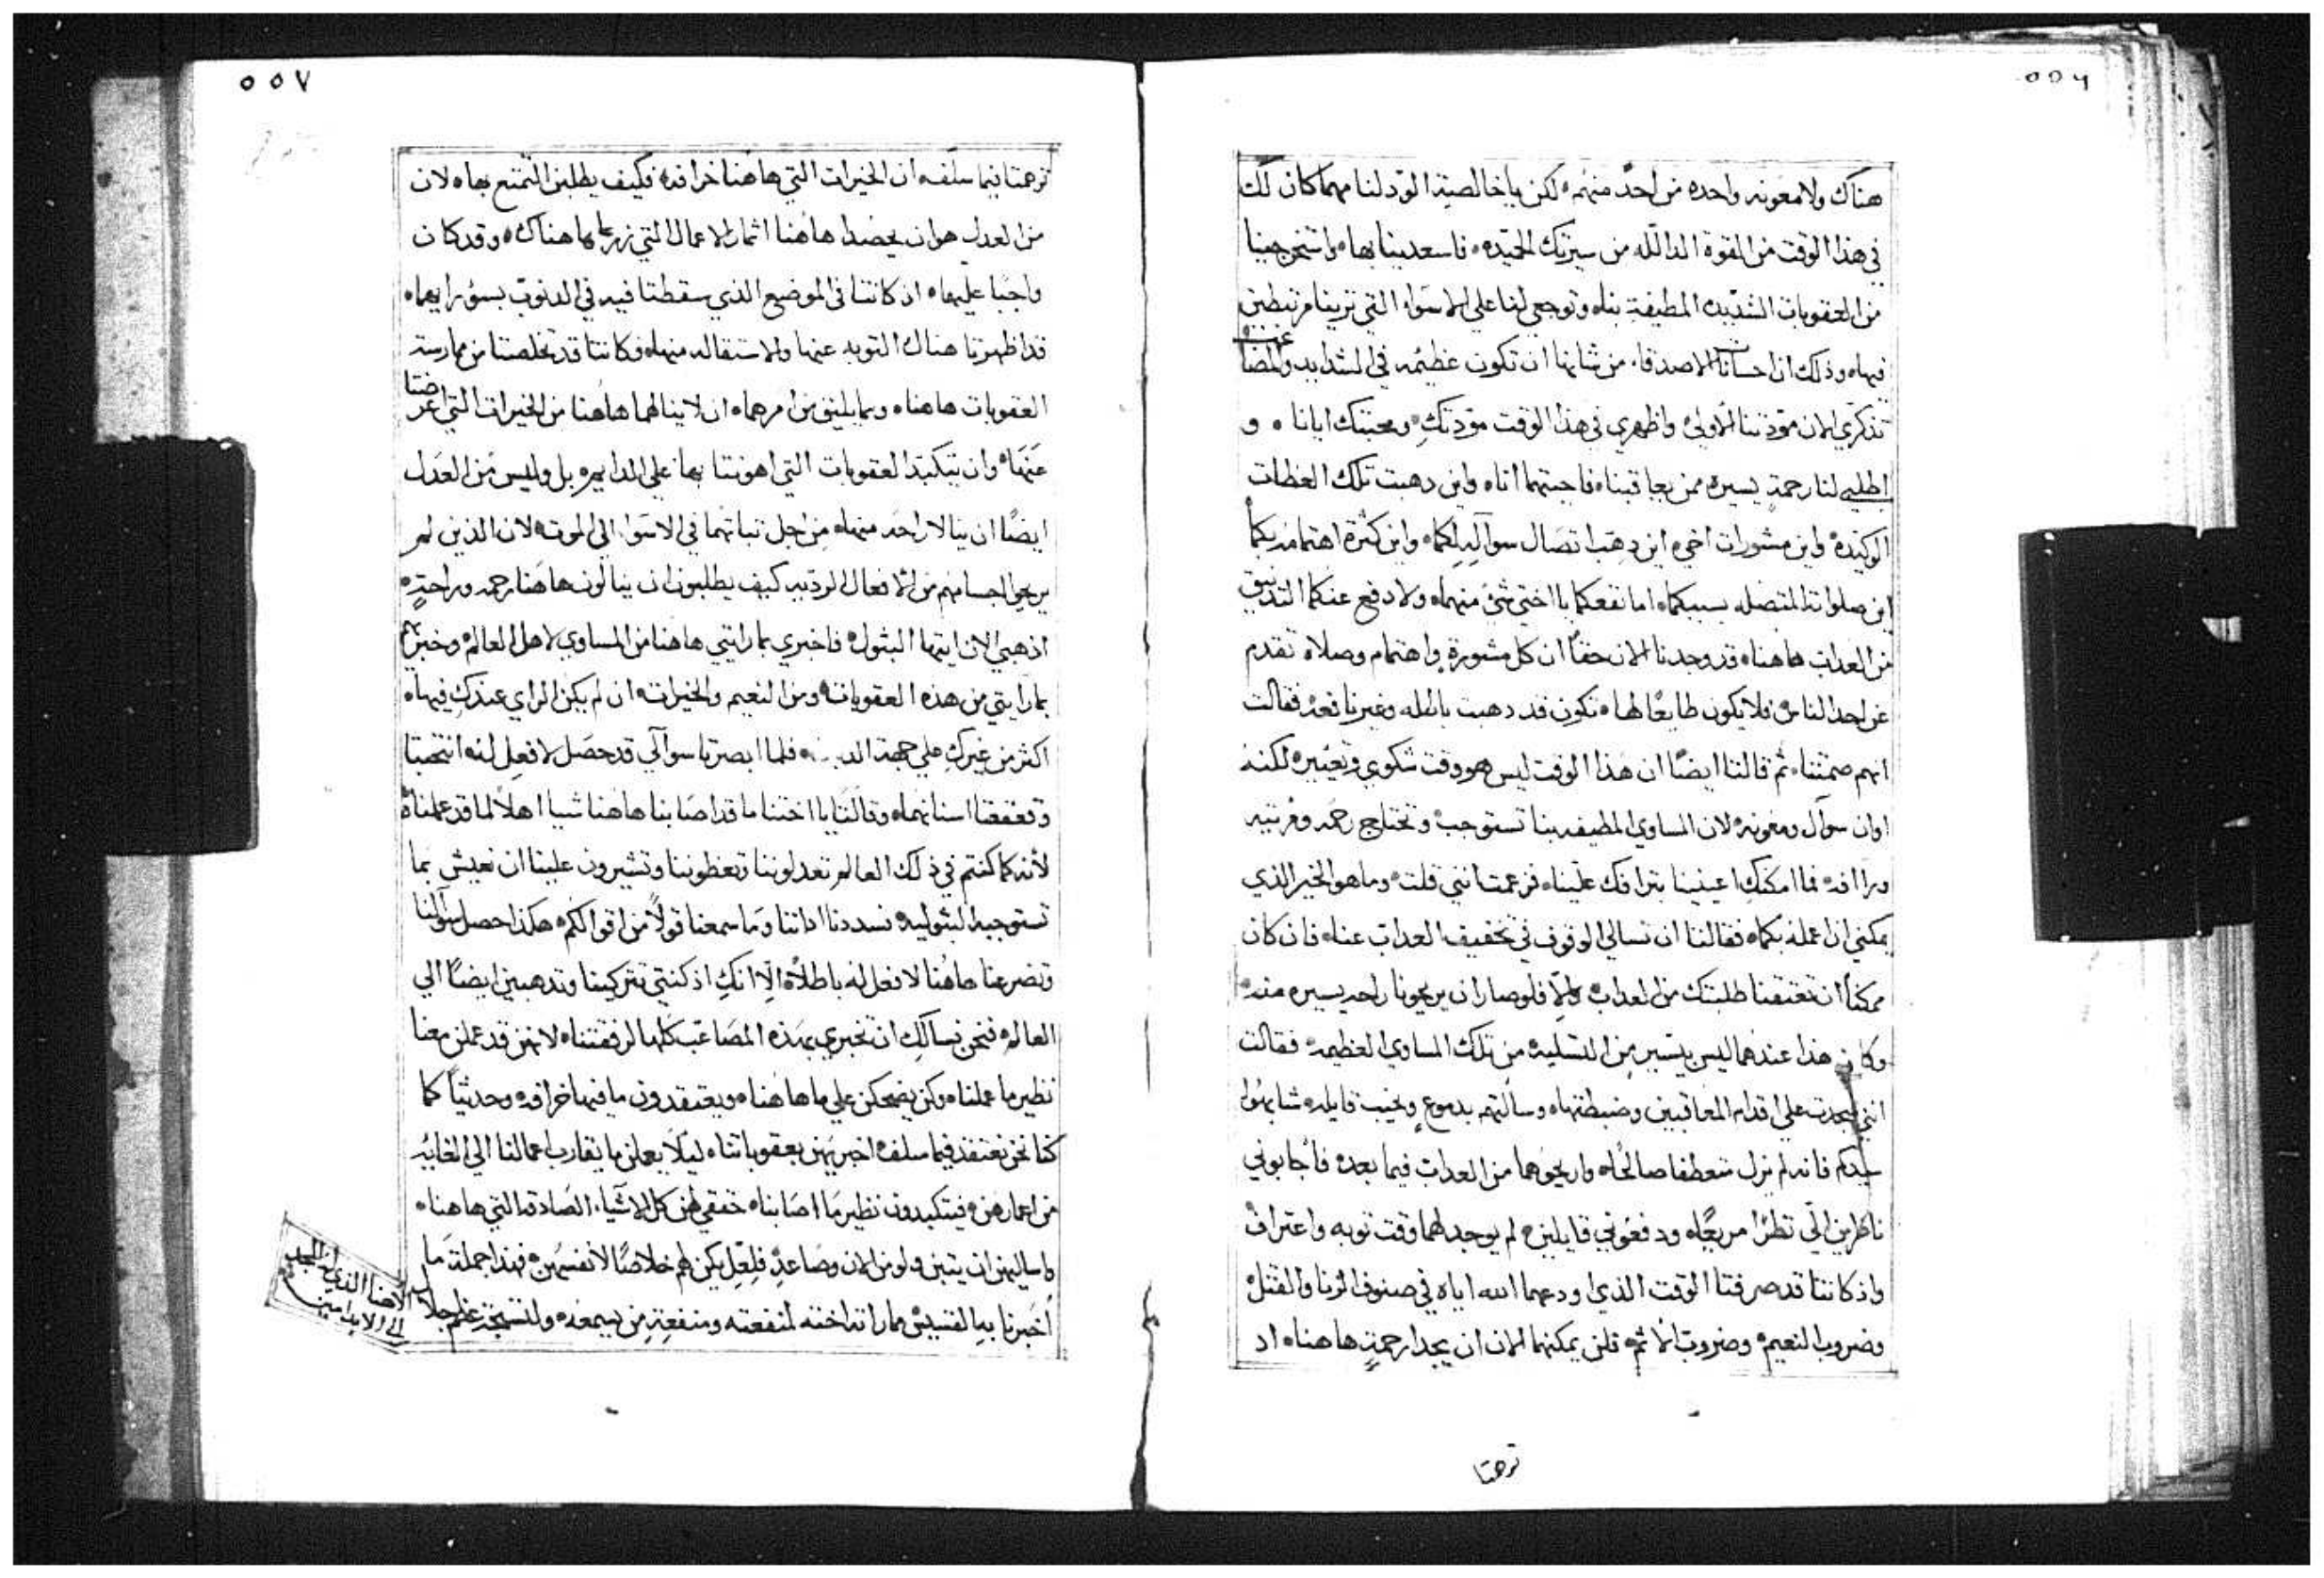 ٥٥٦
هناك ولا معونه واحده من احدٍ منهم، لكن يا خالصية الود لنا مهما كان لك
في هذا الوقت من القوة الدالله من سيرتك الحميده، فاسعدينا بها، واستخرجينا
من العقوبات الشديده المطيفة بنا، وتوجعي لنا علي الاسواء التي ترينا مرتبطين
فيها، وذلك ان احسانات الاصدقاء من شانها ان تكون عظيمه في الشدايد والمضاغث
تذكري الان مودتنا الاولي، واظهري في هذا الوقت مودتكِ، ومحبتك ايانا، و
اطلبي لنا رحمةٍ يسيره ممن يعاقبنا، فاجبتهما انا، واين دهبت تلك العظات
الوكيده، واين مشورات اخي، اين دهب اتصال سوآله لكما، واين كثرة اهتمامه بكما
اين صلواته المتصله بسببكما، اما نفعكما يا اختي شيُ منهما، ولا دفع عنكما التدنيق
من العداب هاهنا، قد وجدنا الان حقاً ان كل مشورةٍ، واهتمام وصلاة تقدم
عن احد الناس، فلا يكون طايعًا لها، تكون قد دهبت باطله وغير نافعه، فقالت
انهم صمتتا، ثم قالتا ايضًا ان هذا الوقت ليس هو وقت شكوي وتعيير، لكنه
اوان سوآل ومعونه، لان المساوي المطيفه بنا تستوجب وتحتاج رحمه ومرتيه
ورآافه، فما امكنكِ اعينينا بترافك علينا، فزعمت انني قلت، وما هو الخير الذي
يمكني ان اعمله بكما، فقالتا ان تسالي الوقوف في تخفيف العداب عنا، فان كان
ممكناً ان تعتقنا طلبتك من العداب، والا فلو صار ان يريحونا راحه يسيره منه
وكان هذا عندهما ليس بيسير من التسليه من تلك المساوي العظيمه، فقالت
انني سجدت علي اقدام المعاقبين وضبطتها، وسالتهم بدموعٍ ونحيب قايله، شابهوا
سيدكم فانه لم يزل متعطفا صالحًا، واريحوهما من العداب فيما بعد، فاجابوني
ناظرين الّي نظرًا مريعًا، ودفعوني قايلين، لم يوجد لهما وقت توبه واعتراف
واذ كانتا قد صرفتا الوقت الذي اودعهما الله اياه في صنوف الزنا والقتل
وضروب النعيم، وضروب الاثم، فلن يمكنهما الان ان يجدا رحمةٍ هاهنا، اد
ترهتا
٥٥٧
ترهتا فيما سلف، ان الخيرات التي هاهنا خرافه، فكيف يطلبن التمتع بها، لان
من العدل هو ان يحصدا هاهنا اثمار الاعمال التي زرعاها هناك، وقد كان
واجبًا عليهما، اذ كانتا في الموضع الذي سقطتا فيه في الدنوب بسؤ رايهما،
قد اظهرتا هناك التوبه عنها والاستقاله منها، وكانتا قد تخلصتا من ممارسة
العقوبات هاهنا، ومما يليق من امرهما، ان لا ينالهما هاهنا من الخيرات التي اعرضتا
عنها، وان تتكبدا العقوبات التي اهونتا بها علي الدايم، بل وليس من العدل
ايضًا ان ينالا راحه منها، من اجل ثباتهما في الاسواء الي الموت، لان الذين لم
يريحوا اجسامهم من الافعال الرديه كيف يطلبون ان ينالون هاهنا رحمه وراحةٍ،
اذهبي الان ايتها البتول، فاخبري بما رايتي هاهنا من المساوي لاهل العالم، وخبريهم
بما رايتي من هذه العقوبات، ومن النعيم والخيرات، ان لم يكن الراي عندكِ فيها،
اكثر من غيركِ علي جهة ، فلما ابصرتا سوآلي قد حصل لا فعل له انتحبتا
وتقعقعتا اسنانهما، وقالتا يا اختنا ما قد اصابنا هاهنا شيا اهلاً لما قد عملناه
لأنه كما كنتم في ذلك العالم تعدلوننا وتعظوننا وتشيرون علينا ان نعيش بما
تستوجبه البتوليه، نسددنا اداننا وما سمعنا قولاً من اقوالكم، هكذا حصل سوآلنا
وتضرعنا هاهُنا لا فعل له باطلاً، الا انكِ اذ كنتي تتركينا وتدهبين ايضًا الي
العالم، فنحن نسالكِ ان تخبري بهذه المصاعب كلها لرفقتنا، لانهن قد عملن معنا
نظير ما عملنا، وكن يضحكن علي ما هاهنا، ويعتقدون ما فيها خرافه وحديثاً كما
كنا نحن نعتقد فيما سلف، اخبريهن بعقوباتنا، ليلا يعملن ما يقارب اعمالنا الي الغايه
من اعمارهن، فيتكبدون نظير ما اصابنا، حققي لهن كل الاشياء الصادقه التي هاهنا،
واساليهن ان يتبن ولو من الان وصاعدٍ، فلعل يكن لهم خلاصًا لأنفسهن، فهذا جملة ما
أخبرنا به القسيس مما راته اخته لمنفعته ومنفعةِ من يسمعه، ولنستمجد عظم جلال
الاهنا الذي له المجد
الي الابد امين